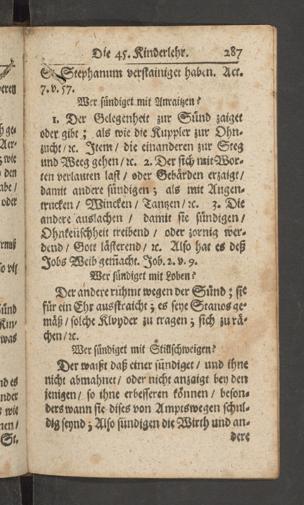 Die 45. Kinderlehr. 287
S. Stephanum verstainiget haben. Act.
7. v. 57.
Wer sündiget mit Anraitzen?
1. Der Gelegenheit zur Sünd zaiget
oder gibt; als wie die Kuppler zur Ohn-
zucht/ ꝛc. Item/ die einanderen zur Steg
und Weeg gehen/ ꝛc. 2. Der sich mit Wor-
ten verlauten last/ oder Gebärden erzaigt/
damit andere sündigen; als mit Augen-
trucken/ Wincken/ Tantzen/ ꝛc. 3. Die
andere auslachen/ damit sie sündigen/
Ohnkeüschheit treibend/ oder zornig wer-
dend/ Gott lästerend/ ꝛc. Also hat es deß
Jobs Weib gemacht. Job. 2. v. 9.
Wer sündiget mit Loben?
Der andere rühmt wegen der Sünd; sie
für ein Ehr ausstraicht; es seye Stands ge-
mäß/ solche Klayder zu tragen; sich zu rä-
chen/ ꝛc.
Wer sündiget mit Stillschweigen?
Der waißt daß einer sündiget/ und ihne
nicht abmahnet/ oder nicht anzaigt bey den
jenigen/ so ihne erbesseren können/ beson-
ders wann sie dises von Amptswegen schul-
dig seynd; Also sündigen die Wirth und an-
dere